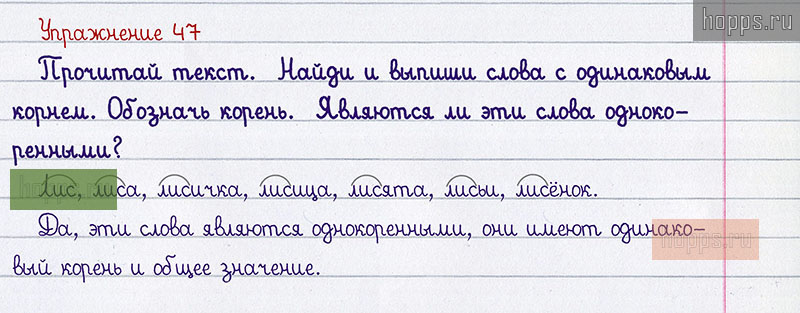 hopps.ru
Упражнение 47
Прочитай текст. Найди и выпиши слова с одинаковым
корнем. Обозначь корень. Являются ли эти слова одноко-
ренными?
Лис, лиса, лисичка, лисица, лисята, лисы, лисёнок.
Да, эти слова являются однокоренными, они имеют одинако-
вый корень и общее значение.
hopps.ru
hopps.ru